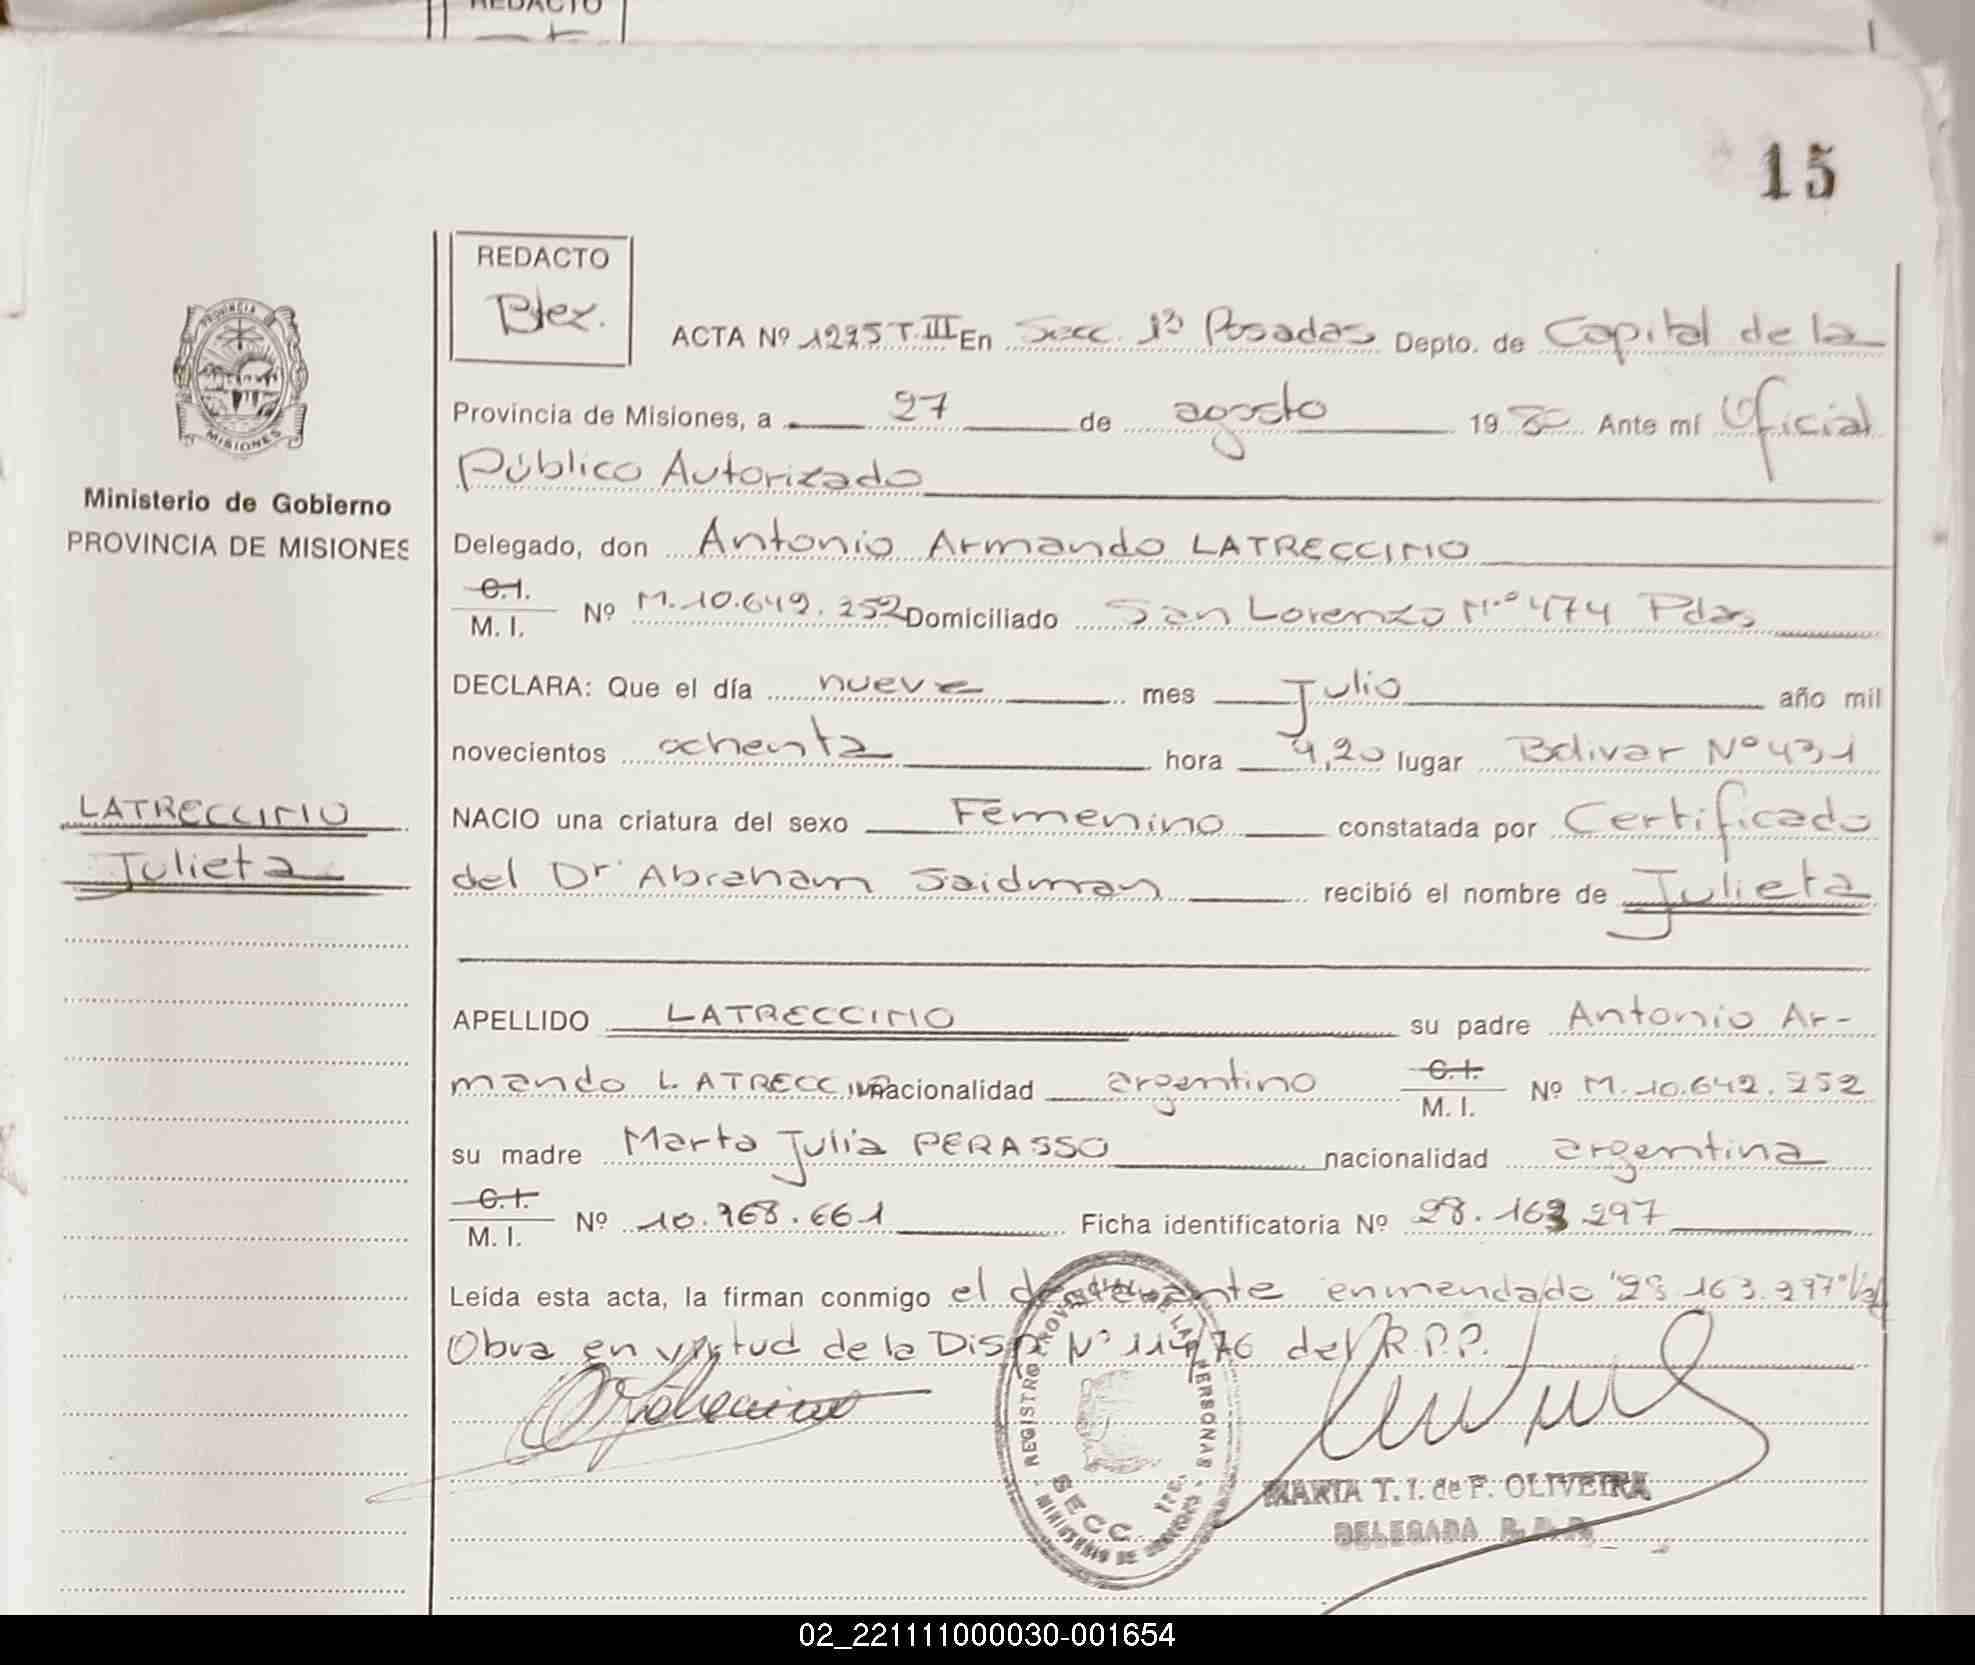 REDACTO
15
REDACTO
Btez.
ACTA Nº 1275 T.III En Secc. 1ª Posadas Depto. de Capital de la
Provincia de Misiones, a 27 de agosto 1980 Ante mí Oficial
Público Autorizado
PROVINCIA
MISIONES
Ministerio de Gobierno
PROVINCIA DE MISIONES
Delegado, don Antonio Armando LATRECCINO
C.I.
M. I. Nº M.10.642.252 Domiciliado San Lorenzo Nº 474 Pdas
DECLARA: Que el día nueve mes Julio año mil
novecientos ochenta hora 4,20 lugar Bolivar Nº 431
LATRECCINO
Julieta
NACIO una criatura del sexo Femenino constatada por Certificado
del Dr Abraham Saidman recibió el nombre de Julieta
APELLIDO LATRECCINO su padre Antonio Ar-
mando LATRECCINO nacionalidad argentino C.I.
M. I. Nº M.10.642.252
su madre Marta Julia PERASSO nacionalidad argentina
C.I.
M. I. Nº 10.968.661 Ficha identificatoria Nº 28.163.297
Leída esta acta, la firman conmigo el declarante enmendado "28.163.297" Vale
Obra en virtud de la Disp. Nº 114/76 del R.P.P.
REGISTRO PROVINCIAL DE LAS PERSONAS
SECC. 1ra.
MINISTERIO DE GOBIERNO
MARIA T. I. de F. OLIVEIRA
DELEGADA R. P. P.
02_221111000030-001654